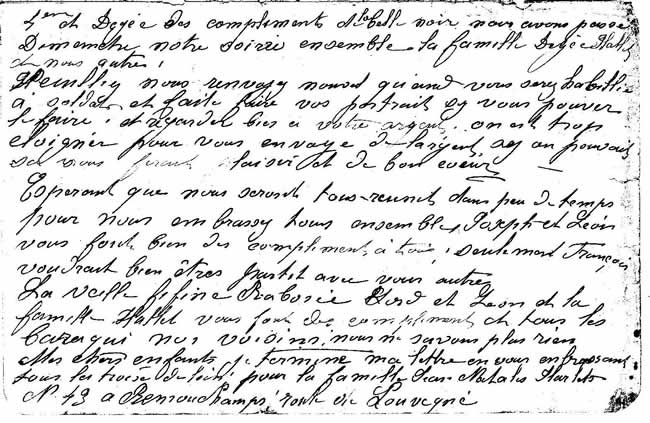 et Dezée des compliments de la belle noir nous avons passé
Dimenche notre soirré ensemble la famille Dezée Hallet
et nous autres!
Veuilley nous renvoyy nouvel quand vous serez habillé
a soldat et faite faire vos portrait sy vous pouver
le faire. et regarder bien a votre argent. on est trop
eloigner pour vous envoye de l'argent sy on pouvait
sa vous ferait plaisir et de bon coeur
Esperant que nous seront tous reunit dans peu de temps
pour nous embrassy tous ensemble, Joseph et Léon
vous fonts bien des compliments à trois, seulement François
voudrait bien êtres partit avec vous autres
La veille fifine Rabosée et Léon et la
famille Hallet vous font des compliments et tous les
baraqui nos voisins, nous ne savons plus rien
Mes chers enfants je termine ma lettre en vous embrassant
tous les troise de pour la famille Jean
N. 43 a Remouchamps route de Louvegné